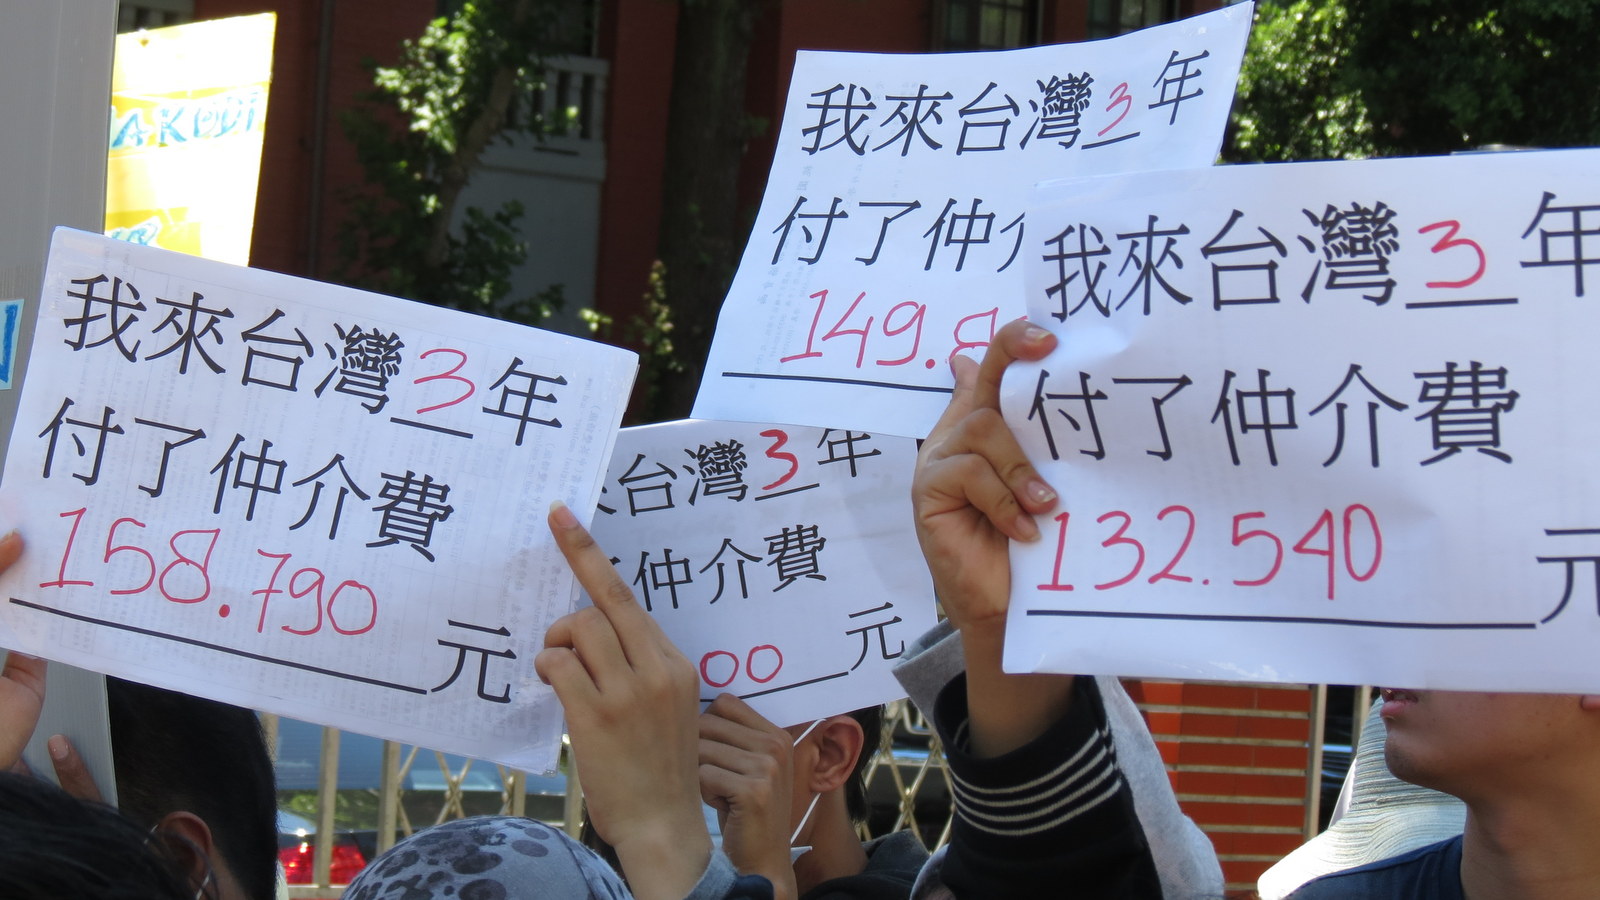 AKƠI
我來台灣3年
付了仲介費
158.790
元
我來台灣3年
付了仲
149.8
台灣3年
仲介費
00
元
我來台灣3年
付了仲介費
132.540
元